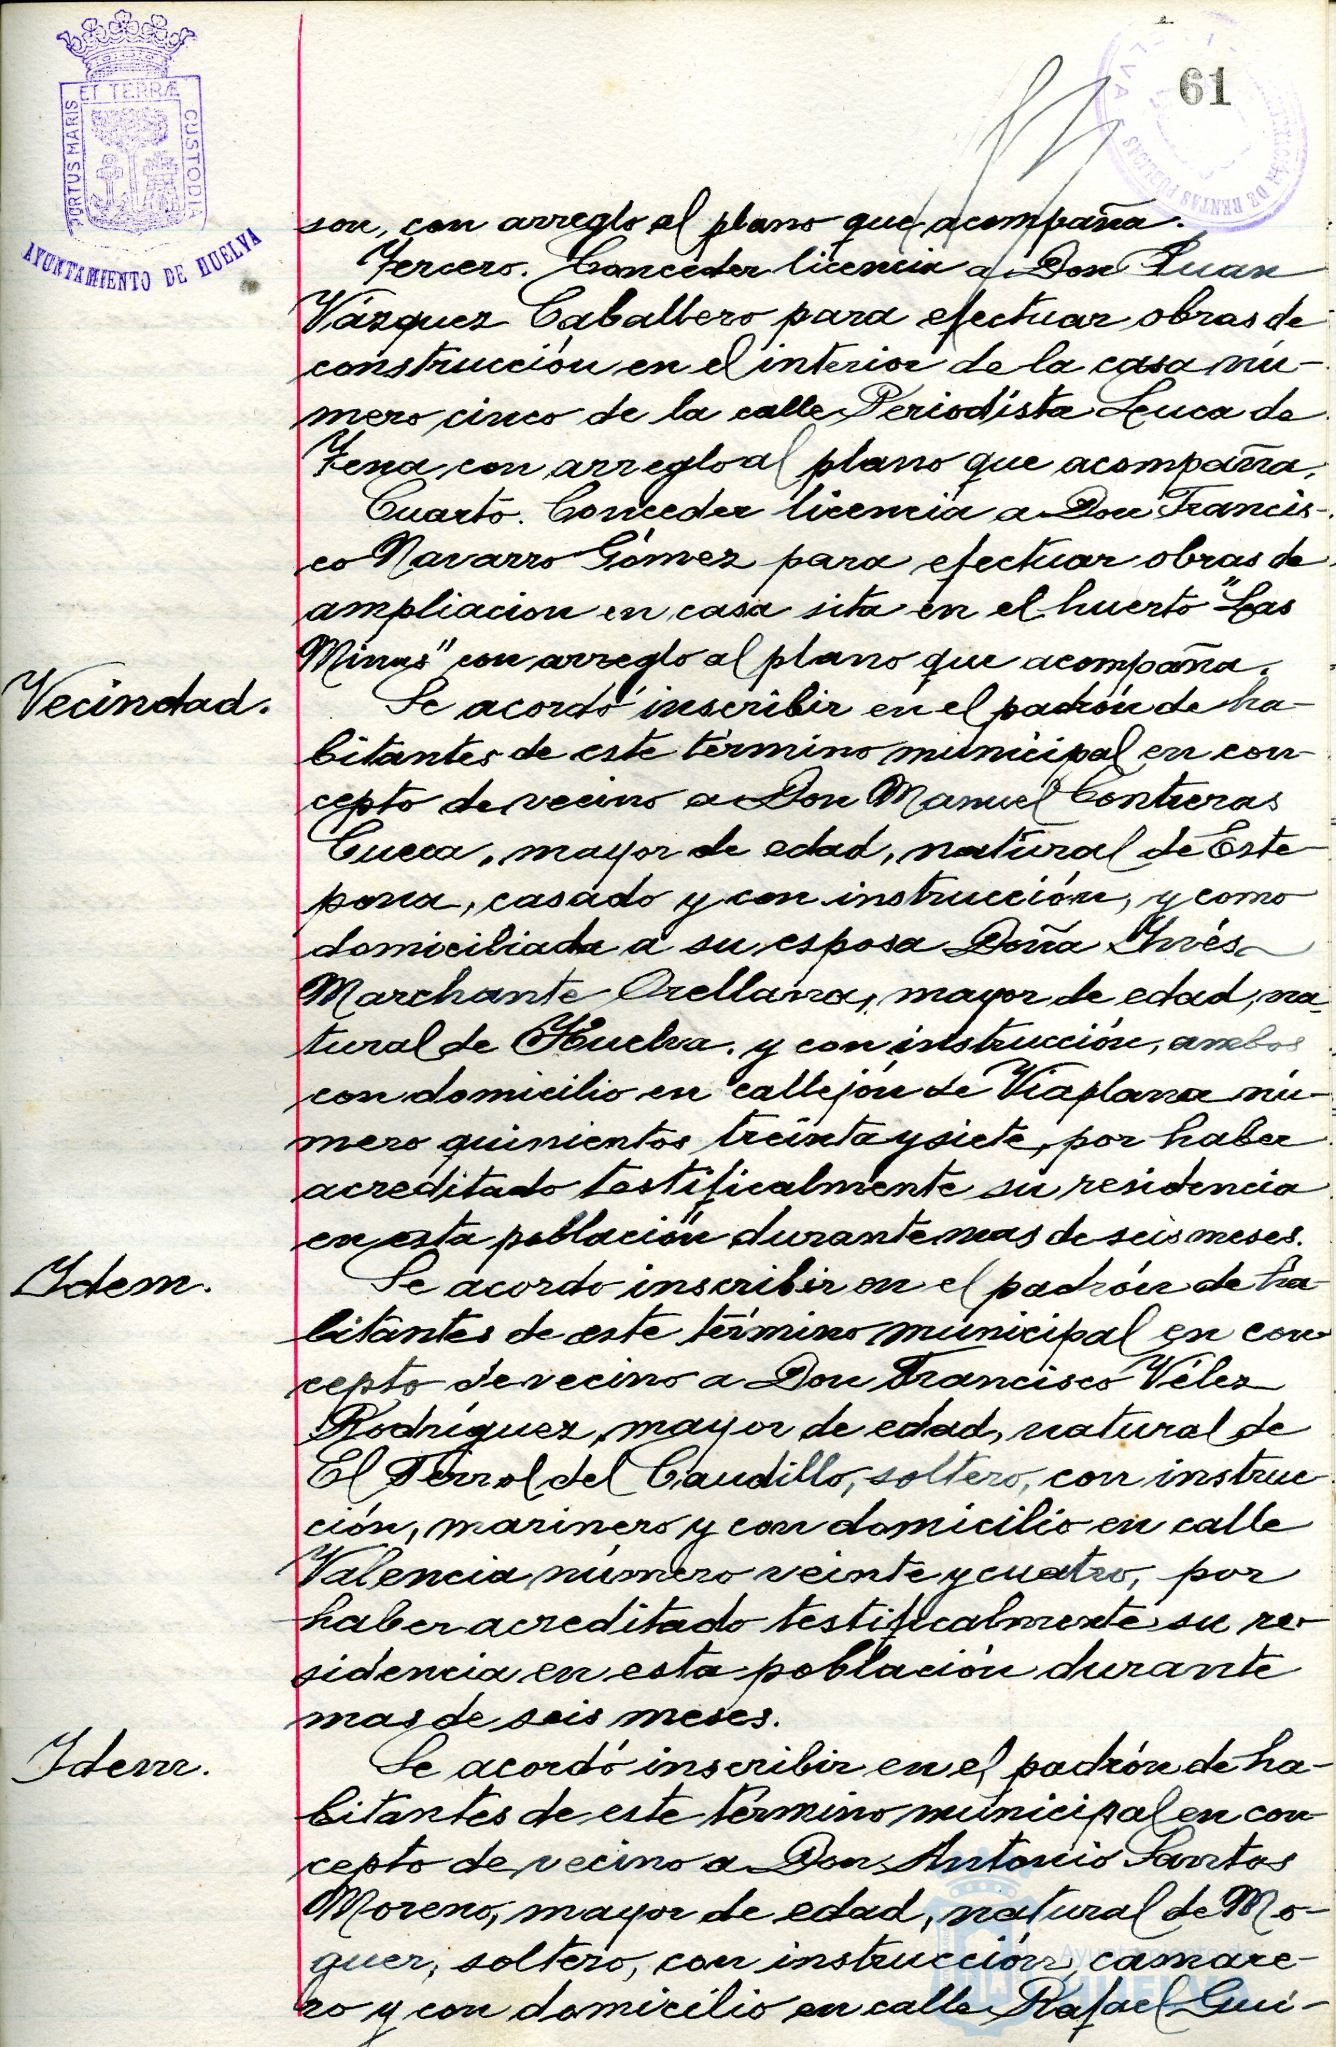 PORTUS MARIS ET TERRÆ CUSTODIA
AYUNTAMIENTO DE HUELVA
61
DE RENTAS PÚBLICAS
son, con arreglo al plano que acompaña.
Tercero. Conceder licencia a Don Juan
Vázquez Caballero para efectuar obras de
construcción en el interior de la casa nú-
mero cinco de la calle Periodista Luca de
Tena con arreglo al plano que acompaña.
Cuarto. Conceder licencia a Don Francis-
co Navarro Gómez para efectuar obras de
ampliacion en casa sita en el huerto "Las
Minas" con arreglo al plano que acompaña.
Vecindad.
Se acordó inscribir en el padrón de ha-
bitantes de este término municipal en con-
cepto de vecino a Don Manuel Contreras
Cueca, mayor de edad, natural de Este-
pona, casado y con instrucción, y como
domiciliada a su esposa Doña Inés
Marchante Orellana, mayor de edad, na-
tural de Huelva, y con instrucción, ambos
con domicilio en callejón de Viaplana nú-
mero quinientos treinta y siete, por haber
acreditado testificalmente su residencia
en esta población durante mas de seis meses.
Idem.
Se acordo inscribir en el padrón de ha-
bitantes de este término municipal en con-
cepto de vecino a Don Francisco Vélez
Rodríguez, mayor de edad, natural de
El Ferrol del Caudillo, soltero, con instruc-
ción, marinero y con domicilio en calle
Valencia número veinte y cuatro, por
haber acreditado testificalmente su re-
sidencia en esta población durante
mas de seis meses.
Idem.
Se acordó inscribir en el padrón de ha-
bitantes de este término municipal en con-
cepto de vecino a Don Antonio Santos
Moreno, mayor de edad, natural de Mo-
guer, soltero, con instrucción, camare-
ro y con domicilio en calle Rafael Gui-
Ayuntamiento de
HUELVA